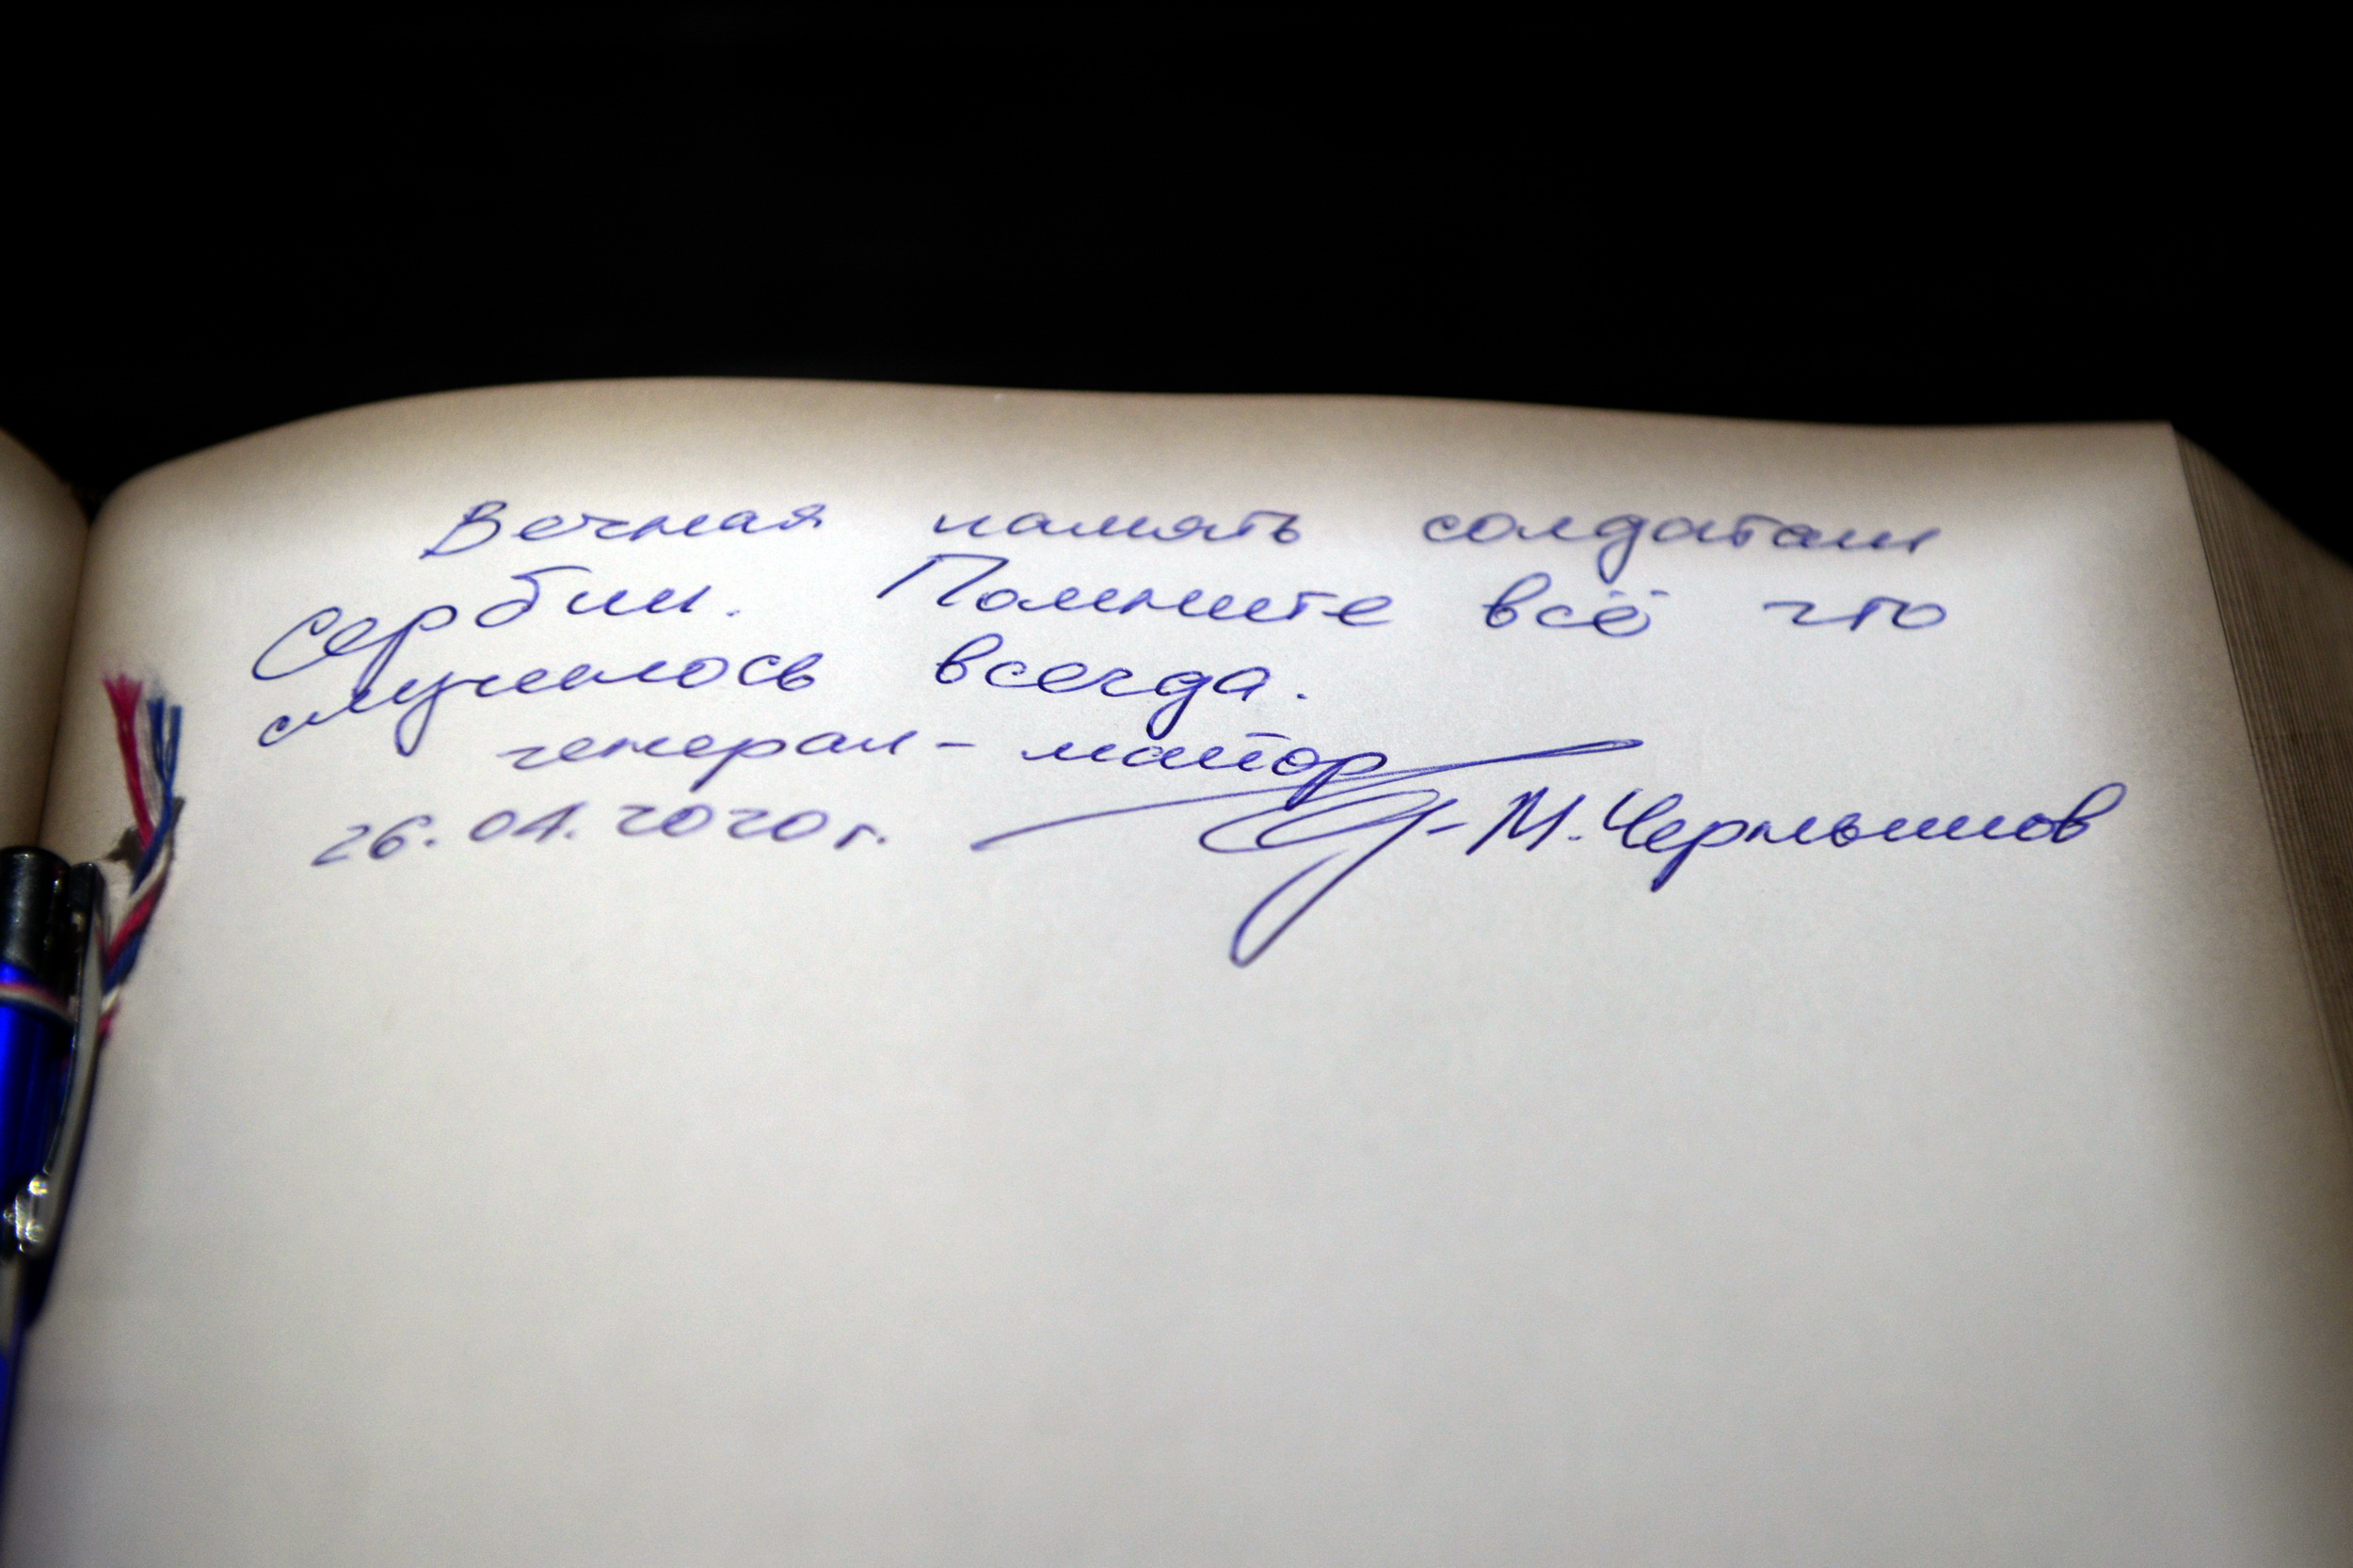 Вечная память солдатам
Сербии. Помните всё что
случилось всегда.
генерал-майор
26.04.2020г. - М. Чернышов